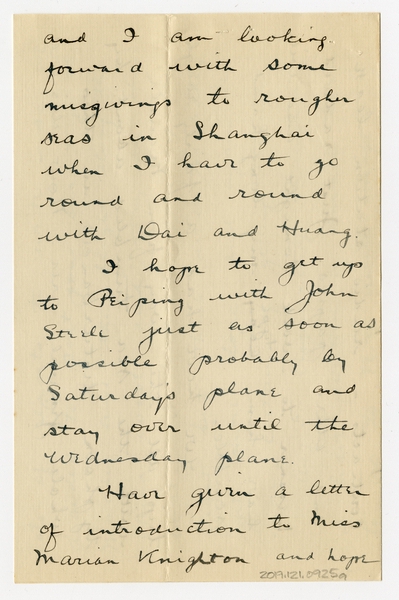 and I am looking
forward with some
misgivings to rougher
seas in Shanghai
when I have to go
round and round
with Dai and Huang.
I hope to get up
to Peiping with John
Steele just as soon as
possible probably by
Saturday's plane and
stay over until the
Wednesday plane.
Have given a letter
of introduction to Miss
Marian Knighton and hope
2019.121.0925a